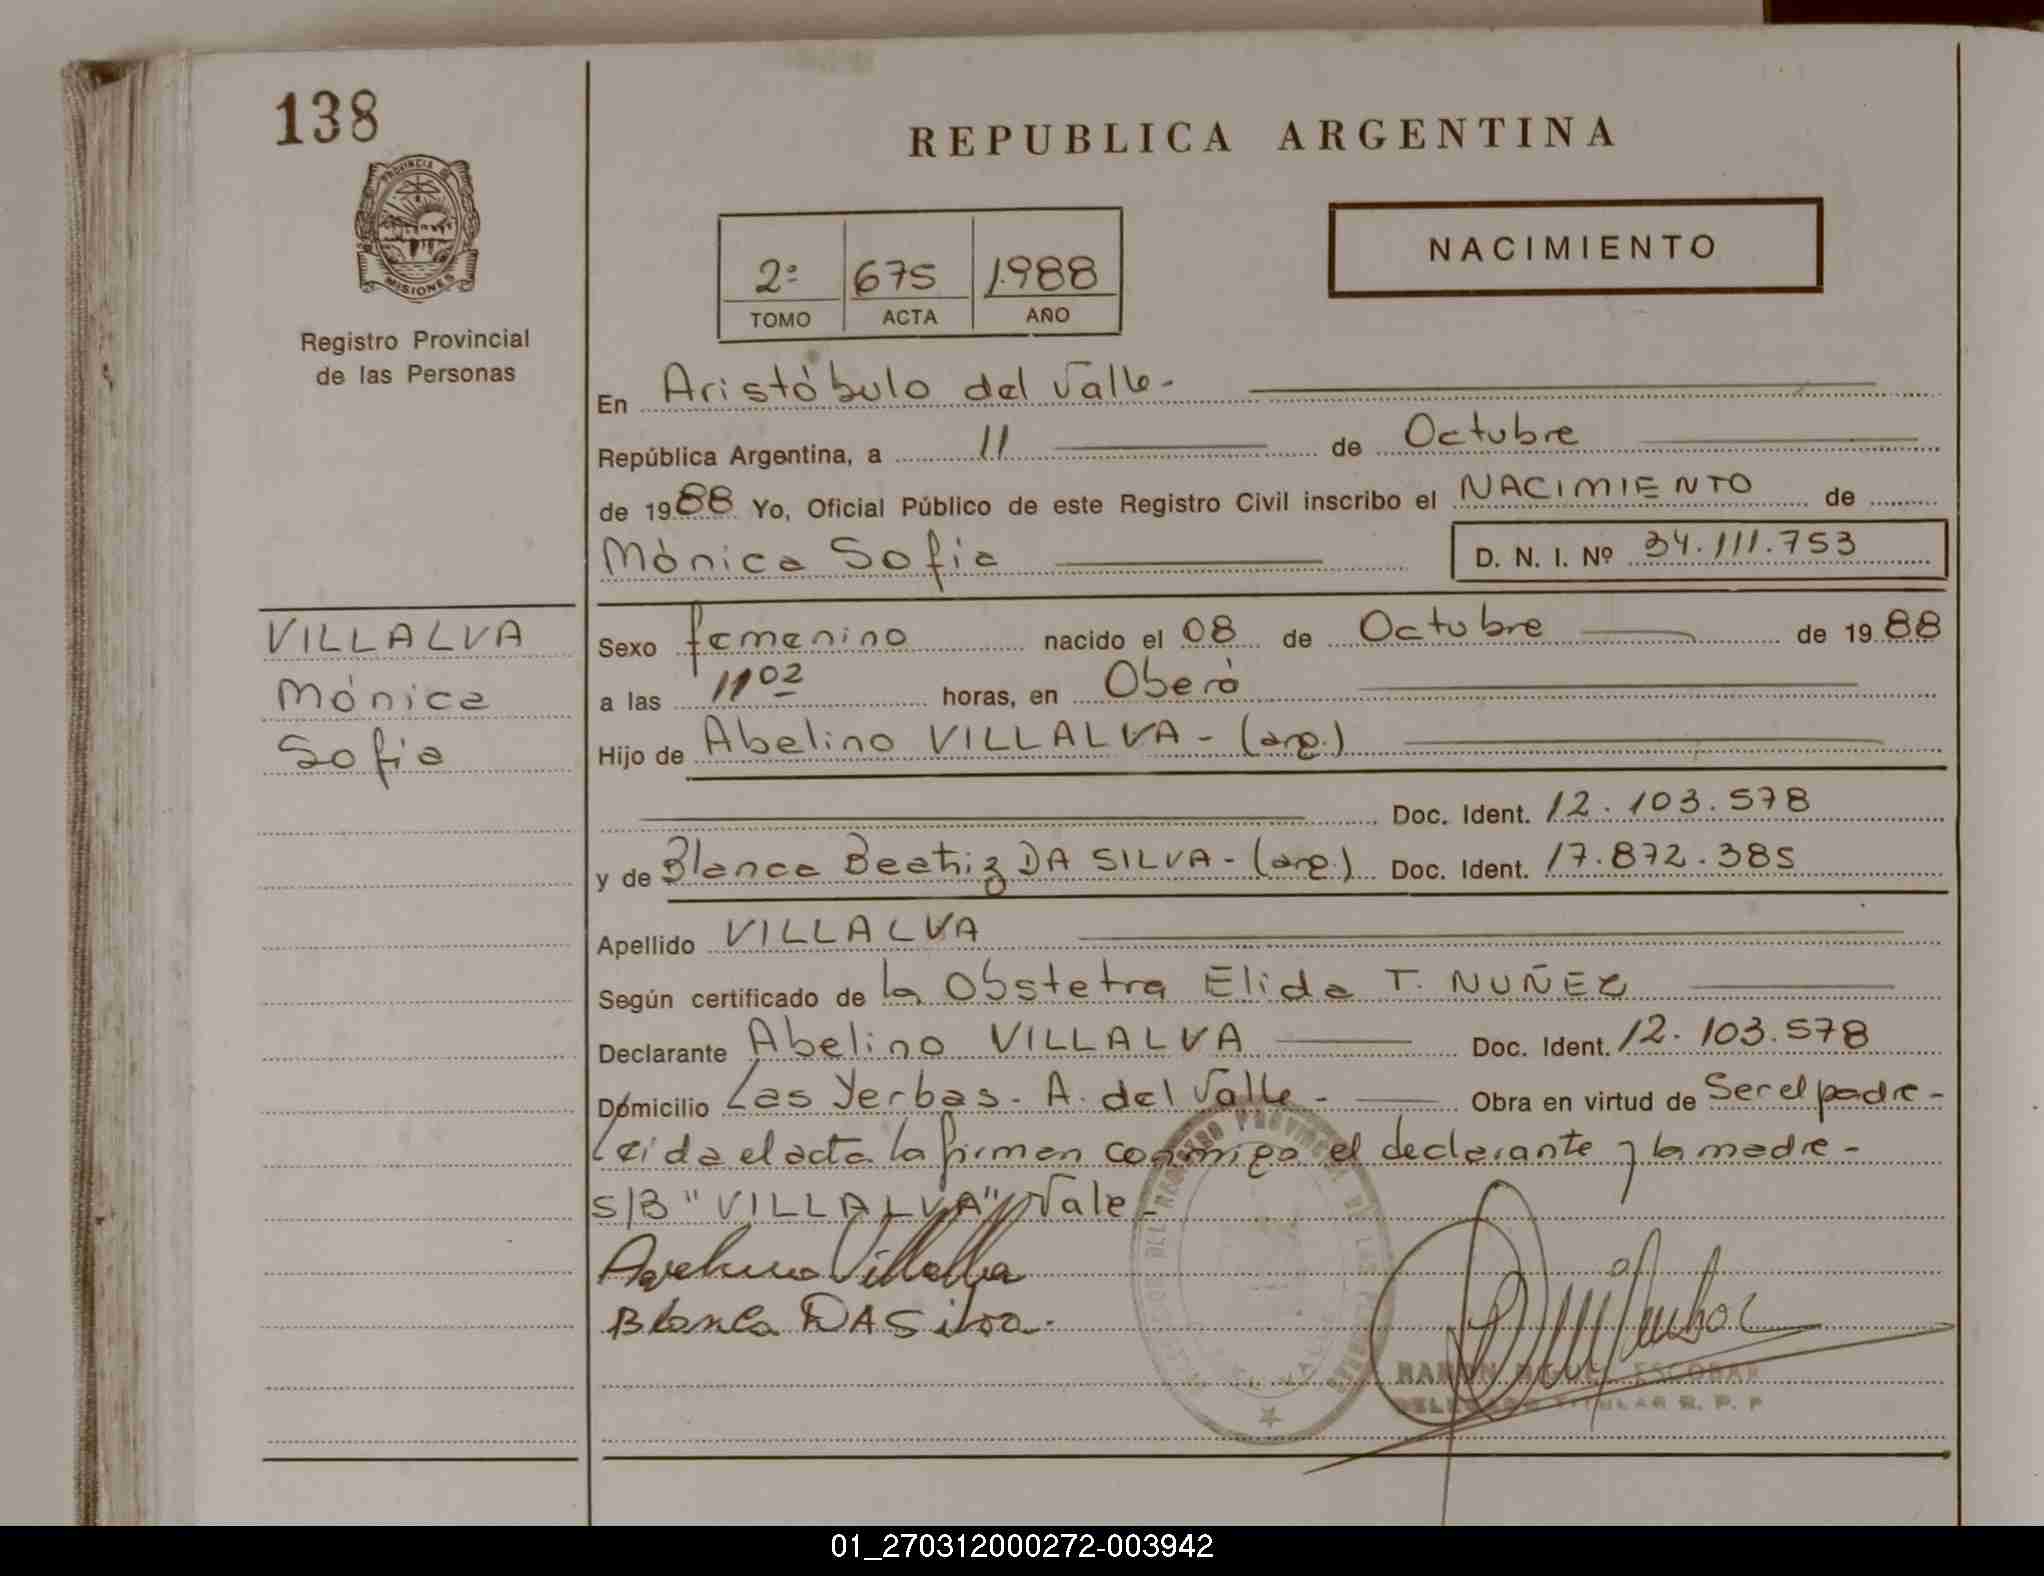 138
PROVINCIA DE
MISIONES
Registro Provincial
de las Personas
REPUBLICA ARGENTINA
NACIMIENTO
2º 675 1.988
TOMO ACTA AÑO
En Aristóbulo del Valle-
República Argentina, a 11 de Octubre
de 1988 Yo, Oficial Público de este Registro Civil inscribo el NACIMIENTO de
Mónica Sofia D. N. I. Nº 34.111.753
VILLALVA
Mónica
Sofia
Sexo femenino nacido el 08 de Octubre de 1988
a las 11 02 horas, en Oberá
Hijo de Abelino VILLALVA - (arg.)
Doc. Ident. 12.103.578
y de Blanca Beatriz DA SILVA - (arg.) Doc. Ident. 17.872.385
Apellido VILLALVA
Según certificado de la Obstetra Elida T. NUÑEZ
Declarante Abelino VILLALVA Doc. Ident. 12.103.578
Domicilio Las Yerbas - A. del Valle - Obra en virtud de Ser el padre -
Leida el acta la firman conmigo el declarante y la madre -
S/B "VILLALVA" Vale -
Avelino Villalba
Blanca DA Silva.
RAMON MIGUEL ESCOBAR
DELEGADO TITULAR R. P. P
01_270312000272-003942